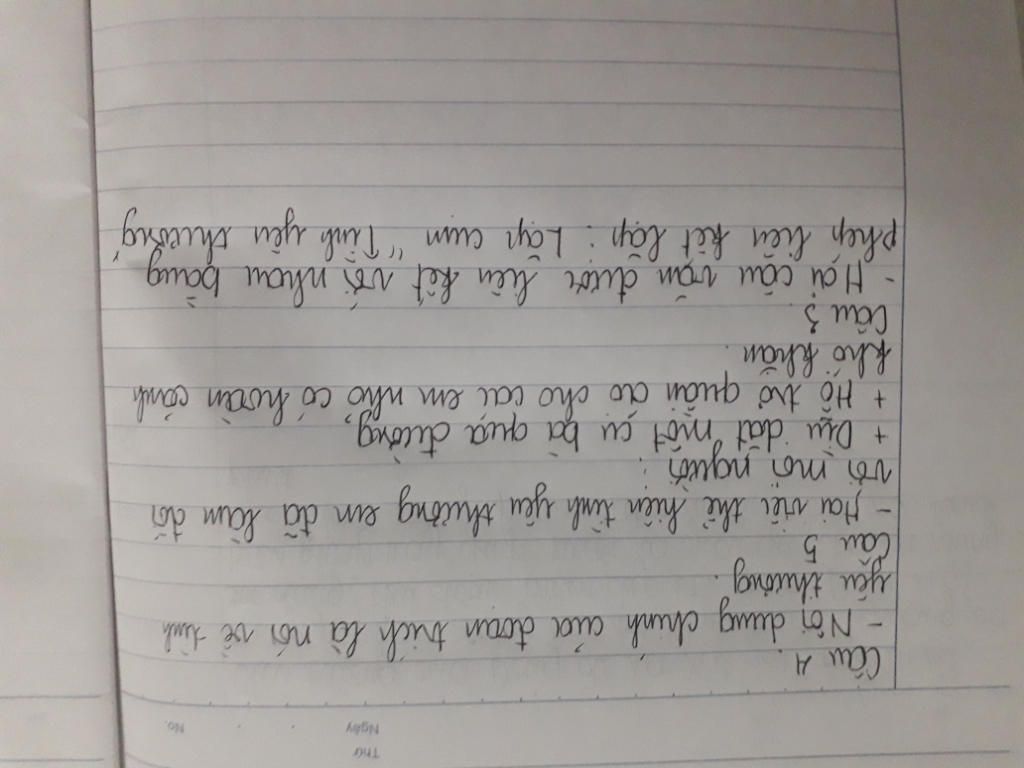 Thứ
Ngày No.
Câu 4.
- Nội dung chính của đoạn trích là nói về tình
yêu thương.
Câu 5
- Hai việc thể hiện tình yêu thương em đã làm đối
với mọi người :
+ Dịu dắt một cụ bà qua đường
+ Hỗ trợ quần áo cho các em nhỏ có hoàn cảnh
khó khăn.
Câu 3.
- Hai câu văn được liên kết với nhau bằng
phép liên kết lặp : Lặp cụm "Tình yêu thương"